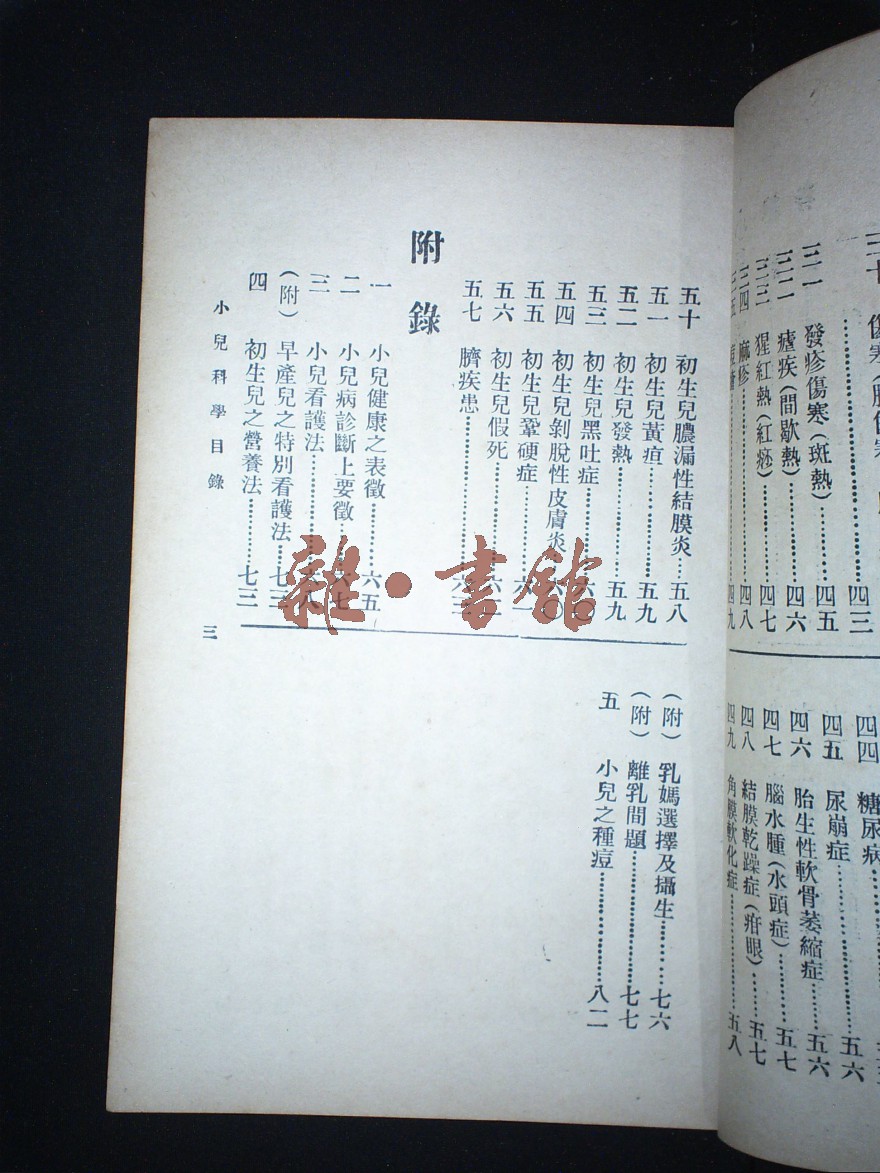 四三
三一 發疹傷寒(斑熱)………四五
三二 瘧疾(間歇熱)………四六
三三 猩紅熱(紅痧)………四七
三四 麻疹………四八
四九
四四 糖尿病
四五 尿崩症………五六
四六 胎生性軟骨萎縮症………五六
四七 腦水腫(水頭症)………五七
四八 結膜乾躁症(疳眼)………五七
四九 角膜軟化症………五八
五十 初生兒膿漏性結膜炎…五八
五一 初生兒黃疸………五九
五二 初生兒發熱………五九
五三 初生兒黑吐症………六〇
五四 初生兒剝脫性皮膚炎…六〇
五五 初生兒鞏硬症………六一
五六 初生兒假死………六
五七 臍疾患………六三
附錄
一 小兒健康之表徵………六五
二 小兒病診斷上要徵………六七
三 小兒看護法………六八
(附) 早產兒之特別看護法…七三
四 初生兒之營養法………七三
(附) 乳媽選擇及攝生………七六
(附) 離乳問題………七七
五 小兒之種痘………八二
小兒科學目錄
三
雜·書館